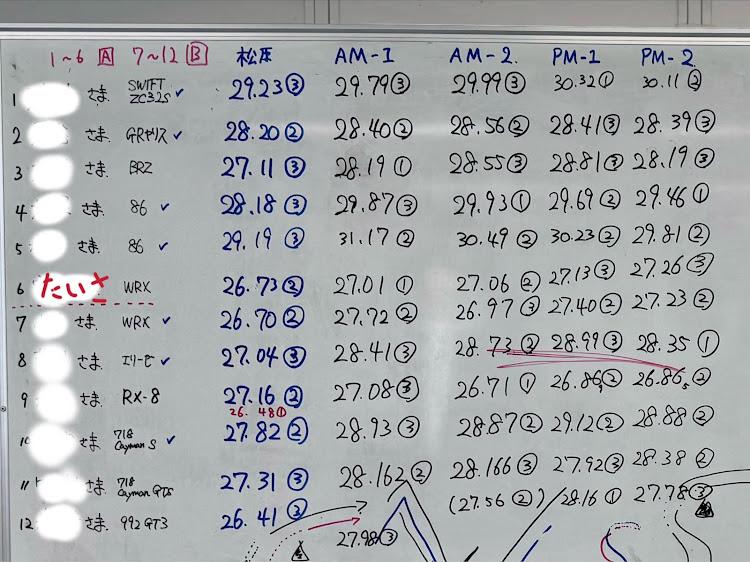 1~6 A 7~12 B 松原 AM-1 AM-2. PM-1 PM-2
1 さま SWIFT ZC32S ✓ 29.23③ 29.79③ 29.99③ 30.32① 30.11②
2 さま GRヤリス ✓ 28.20② 28.40② 28.56② 28.41③ 28.39③
3 さま BRZ 27.11③ 28.19① 28.55③ 28.81③ 28.19③
4 さま 86 ✓ 28.18③ 29.87③ 29.93① 29.69② 29.46①
5 さま 86 ✓ 29.19③ 31.17② 30.49② 30.23② 29.81②
6 たいさ WRX 26.73② 27.01① 27.06② 27.13③ 27.26③
7 さま WRX ✓ 26.70② 27.72② 26.97③ 27.40② 27.23②
8 さま エリーゼ ✓ 27.04③ 28.41③ 28.73② 28.99③ 28.35①
9 さま RX-8 27.16② 27.08③ 26.71① 26.86₉② 26.86₅②
26.48①
10 さま 718 Cayman S ✓ 27.82② 28.93③ 28.87② 29.12② 28.88②
11 さま 718 Cayman GTS 27.31③ 28.162② 28.166③ 27.92③ 28.38②
12 さま 992 GT3 26.41③ 27.98③ (27.56②) 28.16① 27.78③